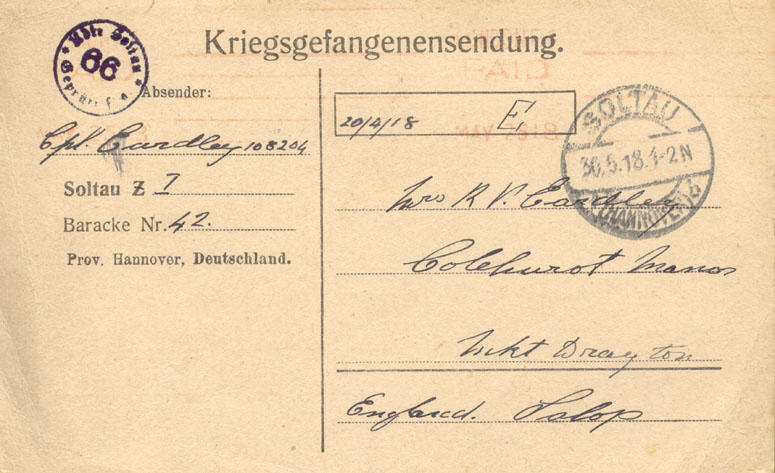 Kriegsgefangenensendung.
66
Absender:
Cpl. Eardley 108204
Soltau Z I
Baracke Nr. 42.
Prov. Hannover, Deutschland.
20/4/18 E
SOLTAU
30.5.18.1-2N
(HANNOVER) b
Mrs R V. Eardley
Colehurst Manor
Mkt Drayton
England. Salop